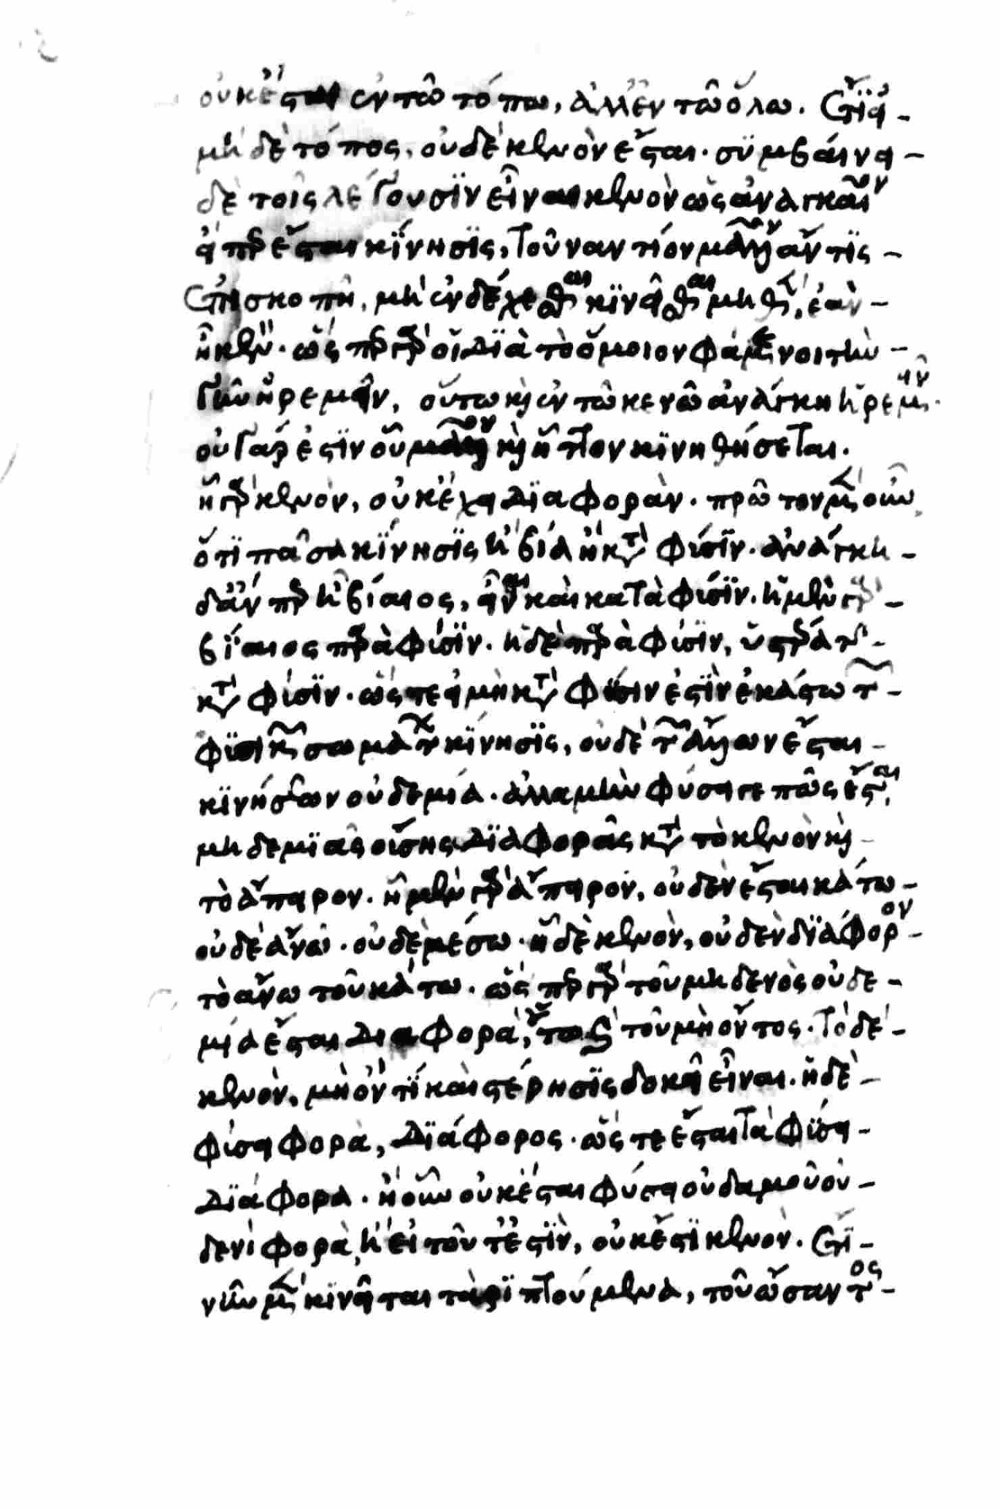 οὐκ ἔσται ἐν τῶ τόπω, ἀλλ' ἐν τῶ ὅλω. ἔτι εἰ
μὴ δὲ τόπος, οὐδὲ κενὸν ἔσται. συμβαίνει
δὲ τοῖς λέγουσιν εἶναι κενὸν ὡς ἀναγκαῖον
εἴπερ ἔσται κίνησις, τοὐναντίον μᾶλλον ἄν τις
ἐπισκοπῆ, μὴ ἐνδέχεσθαι κινεῖσθαι μηθὲν, ἐὰν
ἦ κενόν. ὥσπερ γὰρ οἱ διὰ τὸ ὅμοιον φάμενοι τὴν
γῆν ἠρεμεῖν, οὕτω καὶ ἐν τῶ κενῶ ἀνάγκη ἠρεμεῖν.
οὐ γάρ ἐστιν οὗ μᾶλλον καὶ ἧττον κινηθήσεται.
ἧ γὰρ κενὸν, οὐκ ἔχει διαφορὰν. πρῶτον μὲν οὖν
ὅτι πᾶσα κίνησις ἢ βία ἢ κατὰ φύσιν. ἀνάγκη
δ' ἄν περ ἦ βίαιος, εἶναι καὶ κατὰ φύσιν. ἡ μὲν γὰρ
βίαιος παρὰ φύσιν. ἡ δὲ παρὰ φύσιν, ὑστέρα τῆς
κατὰ φύσιν. ὥστε εἰ μὴ κατὰ φύσιν ἐστὶν ἑκάστω τῶν
φυσικῶν σωμάτων κίνησις, οὐδὲ τῶν ἄλλων ἔσται
κινήσεων οὐδεμία. ἀλλὰ μὴν φύσει γε πῶς ἔσται,
μηδεμιᾶς οὔσης διαφορᾶς κατὰ τὸ κενὸν καὶ
τὸ ἄπειρον. ἧ μὲν γὰρ ἄπειρον, οὐδὲν ἔσται κάτω
οὐδὲ ἄνω. οὐδὲ μέσω. ἧ δὲ κενὸν, οὐδὲν διάφορον
τὸ ἄνω τοῦ κάτω. ὥσπερ γὰρ τοῦ μηδενὸς οὐδε
μία ἔσται διαφορά, οὕτως καὶ τοῦ μὴ ὄντος. τὸ δὲ
κενὸν, μὴ ὄν τι καὶ στέρησις δοκεῖ εἶναι. ἡ δὲ
φύσει φορὰ, διάφορος. ὥστε ἔσται τὰ φύσει
διάφορα. ἢ οὖν οὐκ ἔσται φύσει οὐδαμοῦ οὐ
δενὶ φορὰ, ἢ εἰ τοῦτ' ἔστιν, οὐκ ἔστι κενὸν. ἔτι
νῦν μὲν κινεῖται τὰ ῥιπτούμενα, τοῦ ὤσαντος